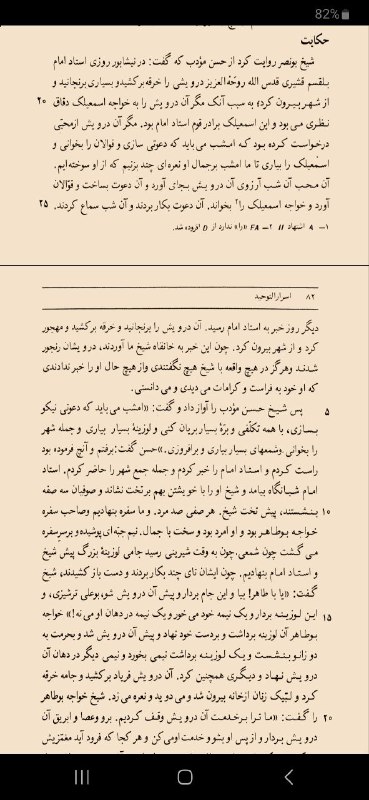 82%
حکایت
شیخ بونصر روایت کرد از حسن مؤدب که گفت: در نیشابور روزی استاد امام
بلقسم قشیری قدس الله روحَهُ العزیز درویشی را خرقه برکشید و بسیاری برنجانید و
از شهر بیرون کرد، به سبب آنک مگر آن درویش را به خواجه اسمعیلک دقاق ۲۰
نظری می بود و این اسمعیلک برادر قوم استاد امام بود. مگر آن درویش از محبّی
درخواست کرده بود که امشب می باید که دعوتی سازی و قوالان را بخوانی و
اسمعیلک را بیاری تا ما امشب بر جمال او نعره ای چند بزنیم که از او سوخته ایم.
آن محب آن شب آرزوی آن درویش بجای آورد و آن دعوت بساخت و قوّالان
آورد و خواجه اسمعیلک را۲ بخواند. آن دعوت بکار بردند و آن شب سماع کردند. ۲۵
۱– A اشتهاد // ۲– FA «را» ندارد از D افزوده شد.
۸۲ اسرارالتوحید
دیگر روز خبر به استاد امام رسید. آن درویش را برنجانید و خرقه برکشید و مهجور
کرد و از شهر بیرون کرد. چون این خبر به خانقاه شیخ ما آوردند، درویشان رنجور
شدند و هرگز در هیچ واقعه با شیخ هیچ نگفتندی و از هیچ حال او را خبر ندادندی
که او خود به فراست و کرامات می دیدی و می دانستی.
۵ پس شیخ حسن مؤدب را آواز داد و گفت: «امشب می باید که دعوتی نیکو
بسازی، با همه تکلّفی و برّهٔ بسیار بریان کنی و لوزینهٔ بسیار بیاری و جمله شهر
را بخوانی و شمعهای بسیار بیاری و برافروزی.» حسن گفت: برفتم و آنچ فرموده بود
راست کردم و استاد امام را خبر کردم و جمله جمع شهر را حاضر کردم. استاد
امام شبانگاه بیامد و شیخ او را با خویشتن بهم بر تخت نشاند و صوفیان سه صفه
۱۰ بنشستند، پیش تخت شیخ. هر صفی صد مرد. و ما سفره بنهادیم و صاحب سفره
خواجه بوطاهر بود و او امرد بود و سخت با جمال. نیم جبّه ای پوشیده و بر سر سفره
می گشت چون شمعی. چون به وقت شیرینی رسید جامی لوزینهٔ بزرگ پیش شیخ
و استاد امام بنهادیم. چون ایشان نای چند بکار بردند و دست باز کشیدند، شیخ
گفت: «یا با طاهر! بیا و این جام بردار و پیش آن درویش شو، بوعلی ترشیزی، و
۱۵ این لوزینه بردار و یک نیمه خود می خور و یک نیمه در دهان او می نه!» خواجه
بوطاهر آن لوزینه برداشت و بر دست خود نهاد و پیش آن درویش شد و بحرمت به
دو زانو بنشست و یک لوزینه برداشت نیمی بخورد و نیمی دیگر در دهان آن
درویش نهاد و دیگری همچنین کرد. آن درویش فریاد برکشید و جامه خرقه
کرد و لبّیک زنان از خانه بیرون شد و می دوید و نعره می زد. شیخ خواجه بوطاهر
۲۰ را گفت: «ما ترا بر خدمت آن درویش وقف کردیم. برو و عصا و ابریق آن
درویش بردار و از پس او بشو و خدمت او می کن و هر کجا که فرود آید مغمزیش